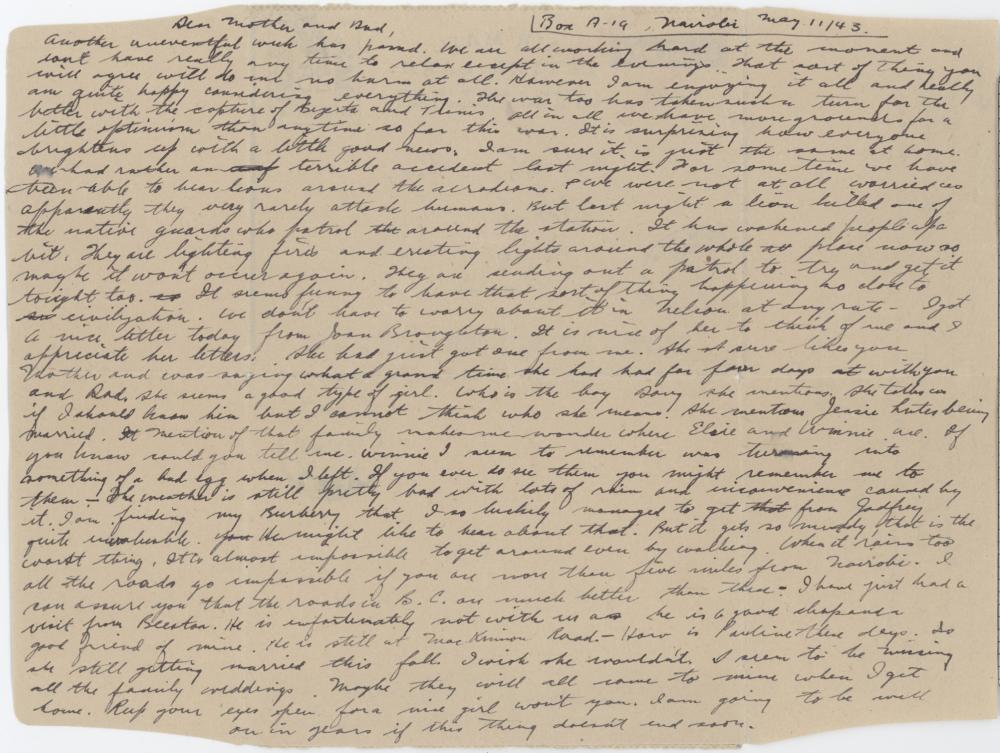 Box A-19, Nairobi May 11/43.
Dear Mother and Dad,
Another uneventful week has passed. We are all working hard at the moment and
don't have really any time to relax except in the evenings. That sort of thing you
will agree will do me no harm at all. However I am enjoying it all and really
am quite happy considering everything. The war too has taken such a turn for the
better with the capture of Bizerta and Tunis. All in all we have more grounds for a
little optimism than anytime so far this war. It is surprising how everyone
brightens up with a little good news. I am sure it is just the same at home.
We had rather an terrible accident last night. For some time we have
been able to hear lions around the aerodrome. we were not at all worried as
apparently they very rarely attack humans. But last night a lion killed one of
the native guards who patrol the around the station. It has wakened people up a
bit. They are lighting fires and erecting lights around the whole place now so
maybe it wont occur again. They are sending out a patrol to try and get it
tonight too. It seems funny to have that sort of thing happening so close to
civilization. We don't have to worry about it in Nelson at any rate - I got
a nice letter today from Joan Broughton. It is nice of her to think of me and I
appreciate her letters. She had just got one from me. She sure likes you
Mother and was saying what a grand time she had had for few days at with you
and Dad, she seems a good type of girl. Who is the boy she mentions, she talks as
if I should know him but I cannot think who she means. She mentions Jessie being
married. Mention of that family makes me wonder where Elsie and Winnie are. If
you know could you tell me. Winnie I seem to remember was turning into
something of a bad egg when I left. If you ever do see them you might remember me to
them - The weather is still pretty bad with lots of rain and inconvenience caused by
it. I am finding my Burberry that I so luckily managed to get that from Godfrey
quite invaluable. you He might like to hear about that. But it gets so muddy that is the
worst thing. It is almost impossible to get around even by walking. When it rains too
all the roads go impassible if you are more than five miles from Nairobi. I
can assure you that the roads in B.C. are much better than these - I have just had a
visit from Beeston. He is unfortunately not with us as he is a good chap and a
good friend of mine. He is still at MacKinnon Road. - How is Pauline these days. Is
she still getting married this fall. I wish she wouldn't. I seem to be missing
all the family weddings. Maybe they will all come to mine when I get
home. Keep your eyes open for a nice girl won't you. I am going to be well
on in years if this thing doesn't end soon.